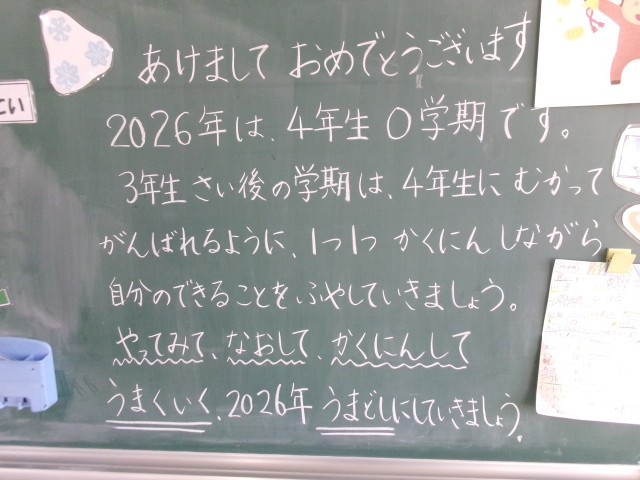 あけまして おめでとうございます
2026年は、4年生 0学期です。
3年生 さい後の学期は、4年生に むかって
がんばれるように、1つ1つ かくにんしながら
自分のできることをふやしていきましょう。
やってみて、なおして、かくにんして
うまくいく、2026年 うまどしにしていきましょう。